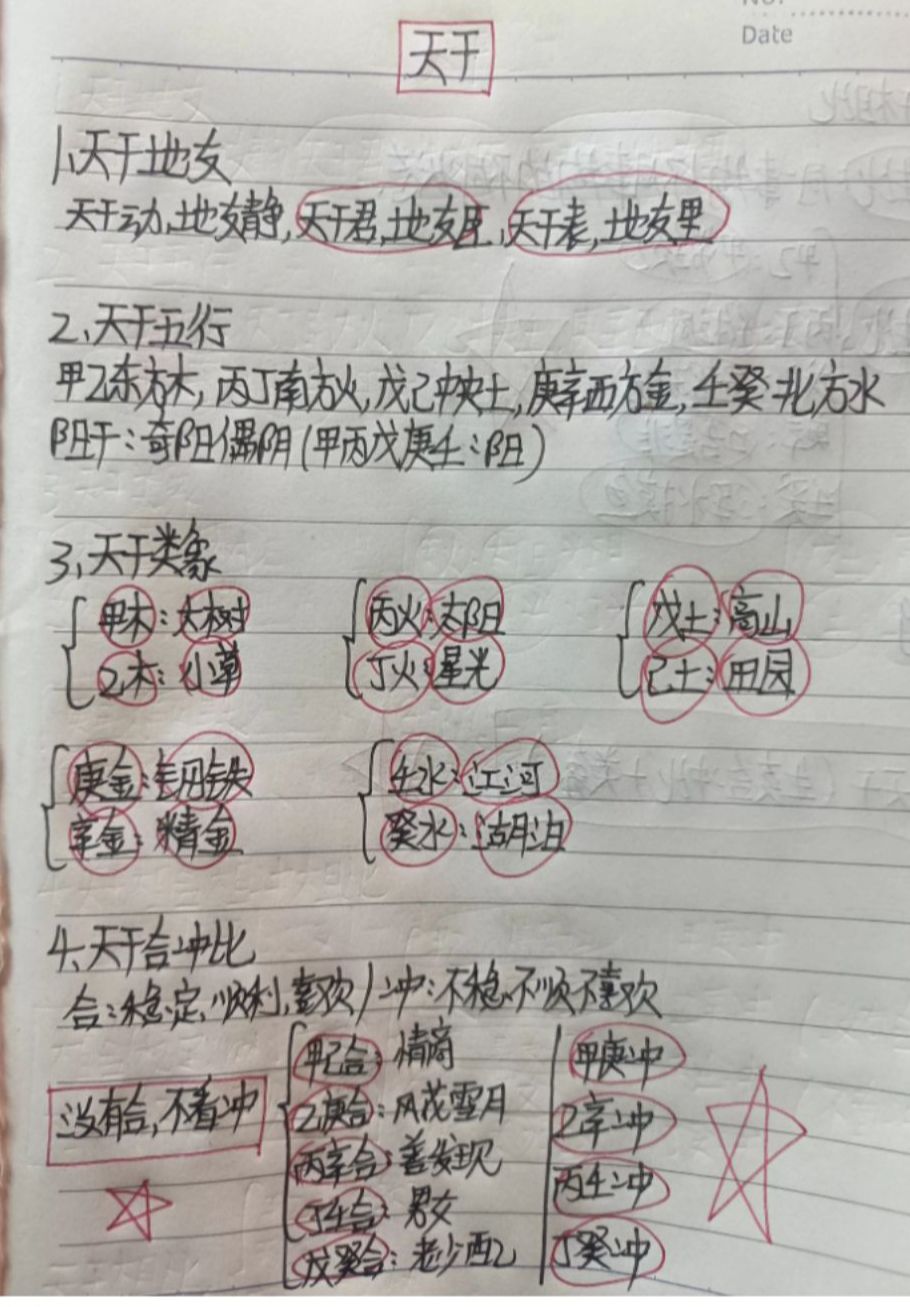 Date
天干
1、天干地支
天干动,地支静,天干君,地支臣,天干表,地支里
2、天干五行
甲乙东方木,丙丁南方火,戊己中央土,庚辛西方金,壬癸北方水
阳干:奇阳偶阴(甲丙戊庚壬:阳)
3、天干类象
甲木:大树
乙木:小草
丙火:太阳
丁火:星光
戊土:高山
己土:田园
庚金:钢铁
辛金:精金
壬水:江河
癸水:湖泊
4、天干合冲比
合:稳定,顺利,喜欢/冲:不稳、不顺不喜欢
没有合,不看冲
甲己合:情商
乙庚合:风花雪月
丙辛合:善发现
丁壬合:男女
戊癸合:老少配
甲庚冲
乙辛冲
丙壬冲
丁癸冲